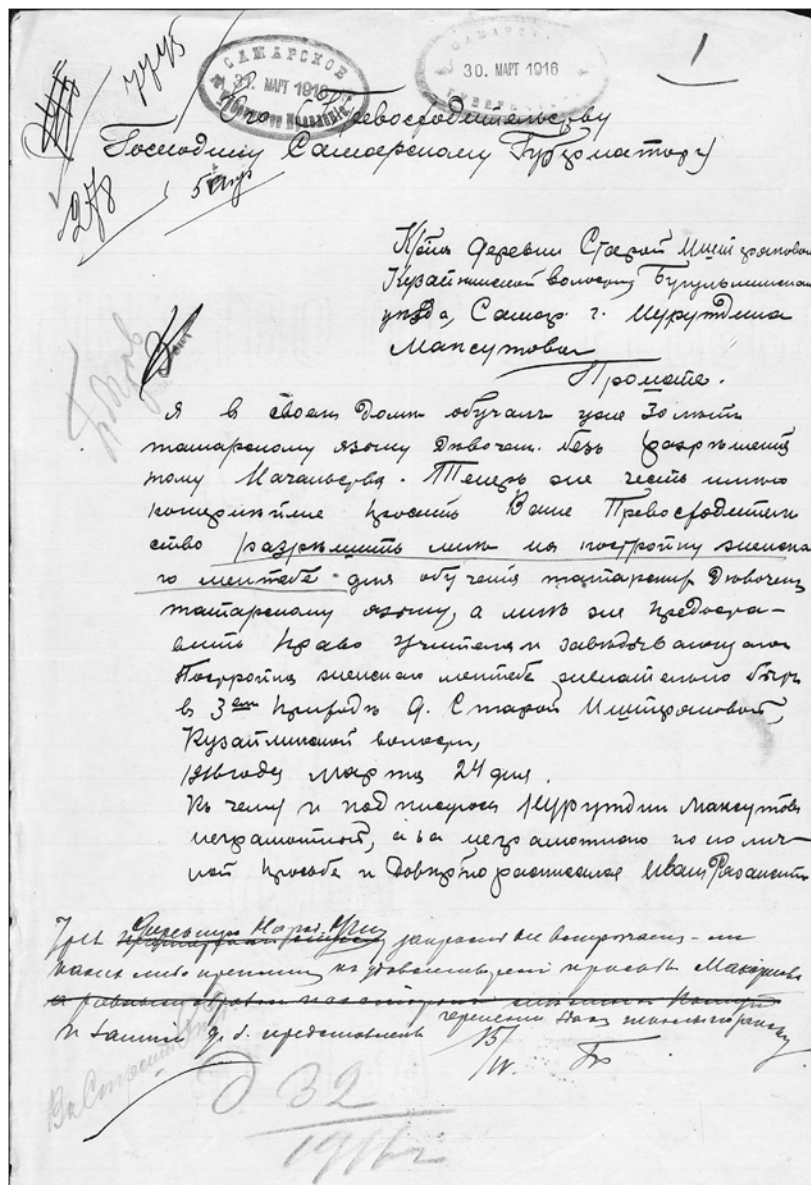 7775
1
САМАРСКОЕ
31. МАРТ 1916
Губернское Правленіе
САМАРС
30. МАРТ 1916
ГУБЕРН
Его Превосходительству
Господину Самарскому Губернатору
278
5 апр
Кр-на деревни Старой Иштряковой
Кузайкинской волости, Бугульминскаго
уѣзда, Самар. г. Нурутдина
Максутова
Прошеніе.
Я в своемъ домѣ обучалъ уже 30 лѣтъ
татарскому языку дѣвочек. безъ разрѣшенія
тому Начальства. Теперь же честь имѣю
просить Ваше Превосходитель
ство разрѣшить мнѣ на постройку женска
го мектебе для обучения татарских дѣвочекъ
татарскому языку, а мнѣ же предоста-
вить право учителя и завѣдывающаго
Постройка женскаго мектебе желательно быть
в 3ем приходѣ д. Старой Иштряковой,
Кузайкинской волости,
1916 года марта 24 дня.
Къ чему и подписуюсь Нурутдин Максутовъ
неграмотный, а за неграмотного по лич-
ной просьбе и доверию расписался Иван
Директора Народ. Учил
запросить не встрѣчается-ли
какихъ либо препятств къ удовлетворенію просьбы Максутова
и д. б. представленъ
15/IV.
Д 32
1916 г